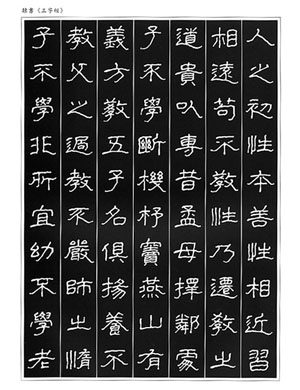 隸書《三字帖》
人之初性本善性相近習
相遠苟不教性乃遷教之
道貴以專昔孟母擇鄰處
子不學斷機杼竇燕山有
義方教五子名俱揚養不
教父之過教不嚴師之惰
子不學非所宜幼不學老